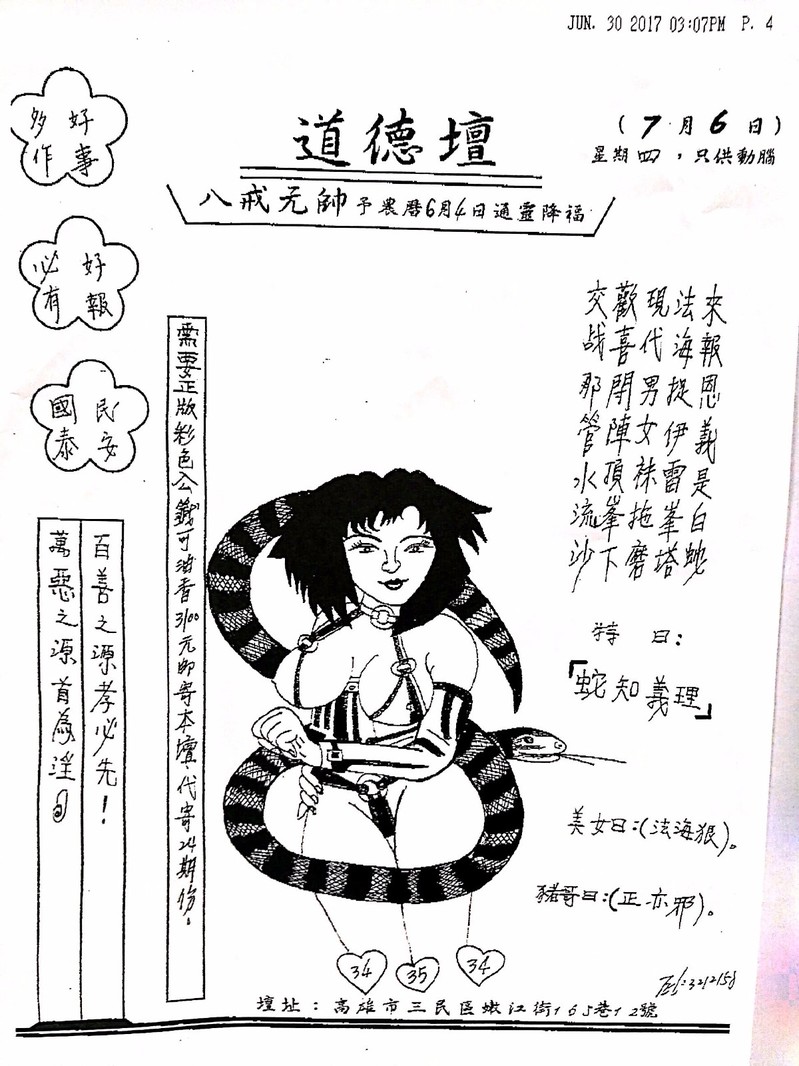 JUN. 30 2017 03:07PM P. 4
道德壇
(7月6日)
星期四，只供動腦
八戒元帥予農曆6月4日通靈降福
好事
多作
好報
必有
民安
國泰
來報恩義是白蛇
法海捉伊雷峯塔
現代男女袜拖磨
歡喜開陣頂峯下
交战那管水流沙
特曰：
「蛇知義理」
美女曰：(法海狠)。
豬哥曰：(正亦邪)。
需要正版彩色公籤可油香3100元郵寄本壇，代寄24期份。
百善之源孝必先！
萬惡之源首為淫
34
35
34
Tel:3212158
壇址：高雄市三民區嫩江街165巷12號